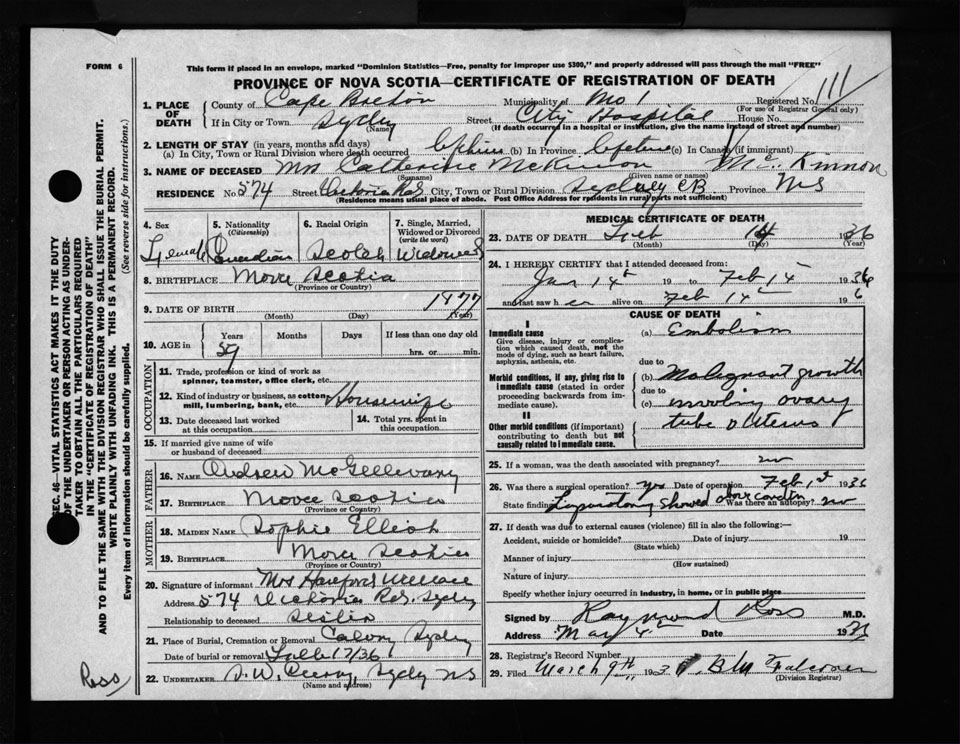 FORM 6
This form if placed in an envelope, marked "Dominion Statistics—Free, penalty for improper use $300," and properly addressed will pass through the mail "FREE"
PROVINCE OF NOVA SCOTIA—CERTIFICATE OF REGISTRATION OF DEATH
1. PLACE OF DEATH
County of Cape Breton Municipality of No 1 Registered No. 111
(For use of Registrar General only)
If in City or Town Sydney Street City Hospital House No.
(Name) (If death occurred in a hospital or institution, give the name instead of street and number)
2. LENGTH OF STAY (in years, months and days)
(a) In City, Town or Rural Division where death occurred (b) In Province Lifetime (c) In Canada (if immigrant)
3. NAME OF DECEASED Mrs Catherine McKinnon McKinnon
(Surname) (Given name or names)
RESIDENCE No 574 Street Victoria Rd. City, Town or Rural Division Sydney CB Province NS
(Residence means usual place of abode. Post Office Address for residents in rural parts not sufficient)
4. Sex Female
5. Nationality (Citizenship) Canadian
6. Racial Origin Scotch
7. Single, Married, Widowed or Divorced (write the word) Widowed
8. BIRTHPLACE Nova Scotia
(Province or Country)
9. DATE OF BIRTH 1877
(Month) (Day) (Year)
10. AGE in Years 59 Months Days If less than one day old hrs. or min.
OCCUPATION
11. Trade, profession or kind of work as spinner, teamster, office clerk, etc.
12. Kind of industry or business, as cotton mill, lumbering, bank, etc. Housewife
13. Date deceased last worked at this occupation
14. Total yrs. spent in this occupation
15. If married give name of wife or husband of deceased
FATHER
16. NAME Andrew McGillivary
17. BIRTHPLACE Nova Scotia
(Province or Country)
MOTHER
18. MAIDEN NAME Sophie
19. BIRTHPLACE Nova Scotia
(Province or Country)
20. Signature of informant Mrs Wallace
Address 574 Victoria Rd. Sydney
Relationship to deceased Sister
21. Place of Burial, Cremation or Removal Calvary Sydney
Date of burial or removal Feb 17/36
22. UNDERTAKER Sydney NS
(Name and address)
MEDICAL CERTIFICATE OF DEATH
23. DATE OF DEATH Feb 14 1936
(Month) (Day) (Year)
24. I HEREBY CERTIFY that I attended deceased from:
Jan 14 19 to Feb 14 1936
and last saw her alive on Feb 14 1936
CAUSE OF DEATH
I
Immediate cause (a) Embolism
Give disease, injury or complication which caused death, not the mode of dying, such as heart failure, asphyxia, asthenia, etc.
due to
Morbid conditions, if any, giving rise to immediate cause (stated in order proceeding backwards from immediate cause).
(b) Malignant growth
due to
(c) involving ovary
tube & uterus
II
Other morbid conditions (if important) contributing to death but not causally related to immediate cause.
25. If a woman, was the death associated with pregnancy? no
26. Was there a surgical operation? yes Date of operation Feb 1st 1936
State finding Laparotomy showed above condition Was there an autopsy? no
27. If death was due to external causes (violence) fill in also the following:—
Accident, suicide or homicide? Date of injury 19
(State which)
Manner of injury
(How sustained)
Nature of injury
Specify whether injury occurred in industry, in home, or in public place
Signed by Raymond Ross M.D.
Address Date May 4 19
28. Registrar's Record Number
29. Filed March 9th 1936 Falconer
(Division Registrar)
SEC. 46—VITAL STATISTICS ACT MAKES IT THE DUTY OF THE UNDERTAKER OR PERSON ACTING AS UNDERTAKER TO OBTAIN ALL THE PARTICULARS REQUIRED IN THE "CERTIFICATE OF REGISTRATION OF DEATH" AND TO FILE THE SAME WITH THE DIVISION REGISTRAR WHO SHALL ISSUE THE BURIAL PERMIT.
WRITE PLAINLY WITH UNFADING INK. THIS IS A PERMANENT RECORD.
Every item of information should be carefully supplied. (See reverse side for instructions.)
Ross